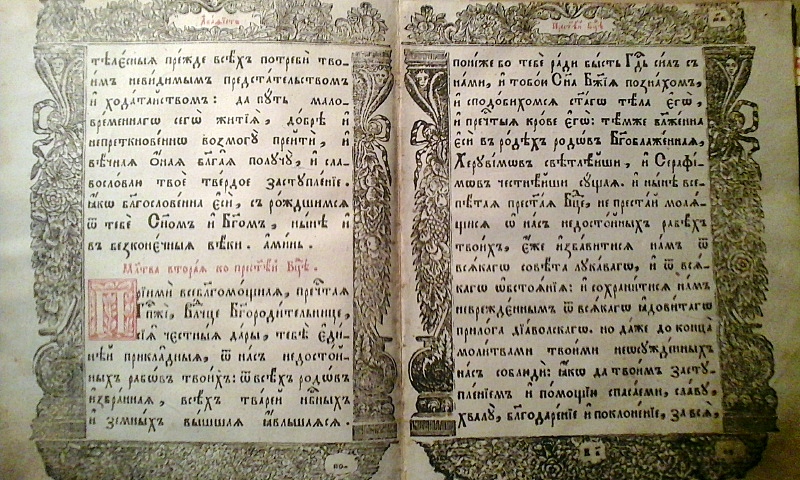 Акаѳістъ
тѣле́сныѧ пре́жде всѣ́хъ потреби тво-
и́мъ неви́димымъ предста́тельствомъ
и҆ хода́тайствомъ : да пꙋ́ть мало-
вре́меннагѡ сегѡ̀ житїѧ̀ , до́брѣ и҆
непреткнове́ннѡ возмогꙋ̀ прейтѝ , и҆
вѣ̑чнаѧ ѡ҆́наѧ бл҃га́ѧ полꙋчꙋ̀ , и҆ сла-
восло́влю твоѐ тве́рдое застꙋпле́нїе .
ꙗ҆́кѡ благослове́нна є҆сѝ , съ ро́ждшимсѧ
ѿ тебѐ Сн҃омъ и҆ Бг҃омъ , ны́нѣ и҆
въ безконе́чныѧ вѣ́ки . а҆ми́нь .
Мл҃тва втораѧ ко прест҃ѣ́й Бц҃ѣ .
Прїимѝ всебл҃гомо́щнаѧ , преч҃таѧ
Гп҃жѐ , Влⷣчце Бг҃ороди́тельнице ,
сїѧ̑ че́стныѧ да́ры , тебѣ̀ є҆ди́-
нѣй прикла̑дныѧ , ѿ на́съ недосто́й-
ныхъ ра̑бѡвъ твои́хъ : ѿ всѣ́хъ родѡ́въ
и҆збра́ннаѧ , всѣ́хъ тва́рей нбⷭ҇ныхъ
и҆ земны́хъ вы́шшаѧ ꙗ҆́вльшаѧсѧ .
Прест҃ѣй Бц҃ѣ
поне́же во тебє̀ ра́ди бы́сть Гдⷭ҇ь си́лъ съ
на́ми , и҆ тобо́ю Сн҃а Бж҃їѧ позна́хомъ ,
и҆ сподо́бихомсѧ ст҃а́гѡ тѣ́ла є҆гѡ̀ ,
и҆ преч҃тыѧ кро́ве є҆гѡ̀ : тѣ́мже бл҃же́нна
є҆сѝ въ родѣ́хъ родѡ́въ Бг҃облаже́ннаѧ ,
Херꙋві́мѡвъ свѣтлѣ́йши , и҆ Серафі́-
мѡвъ честнѣ́йши сꙋ́щаѧ . и҆ ны́нѣ все-
пѣ́таѧ прест҃а́ѧ Бц҃е , не преста́й молѧ́-
щисѧ ѡ҆ на́съ недосто́йныхъ рабѣ́хъ
твои́хъ , є҆́же и҆зба́витисѧ на́мъ ѿ
всѧ́кагѡ совѣ́та лꙋка́вагѡ , и҆ ѿ всѧ́-
кагѡ ѡ҆бстоѧ́нїѧ : и҆ сохрани́тисѧ на́мъ
невреждє́ннымъ ѿ всѧ́кагѡ ꙗ҆дови́тагѡ
прило́га дїа́вольскагѡ . но да́же до конца̀
моли́твами твои́ми неѡсꙋжде́нныхъ
на́съ соблюдѝ : ꙗ҆́кѡ да твои́мъ застꙋ-
пле́нїемъ и҆ по́мощїю спаса́еми , сла́вꙋ ,
хвалꙋ̀ , бл҃годаре́нїе и҆ поклоне́нїе , за всѧ̑ ,